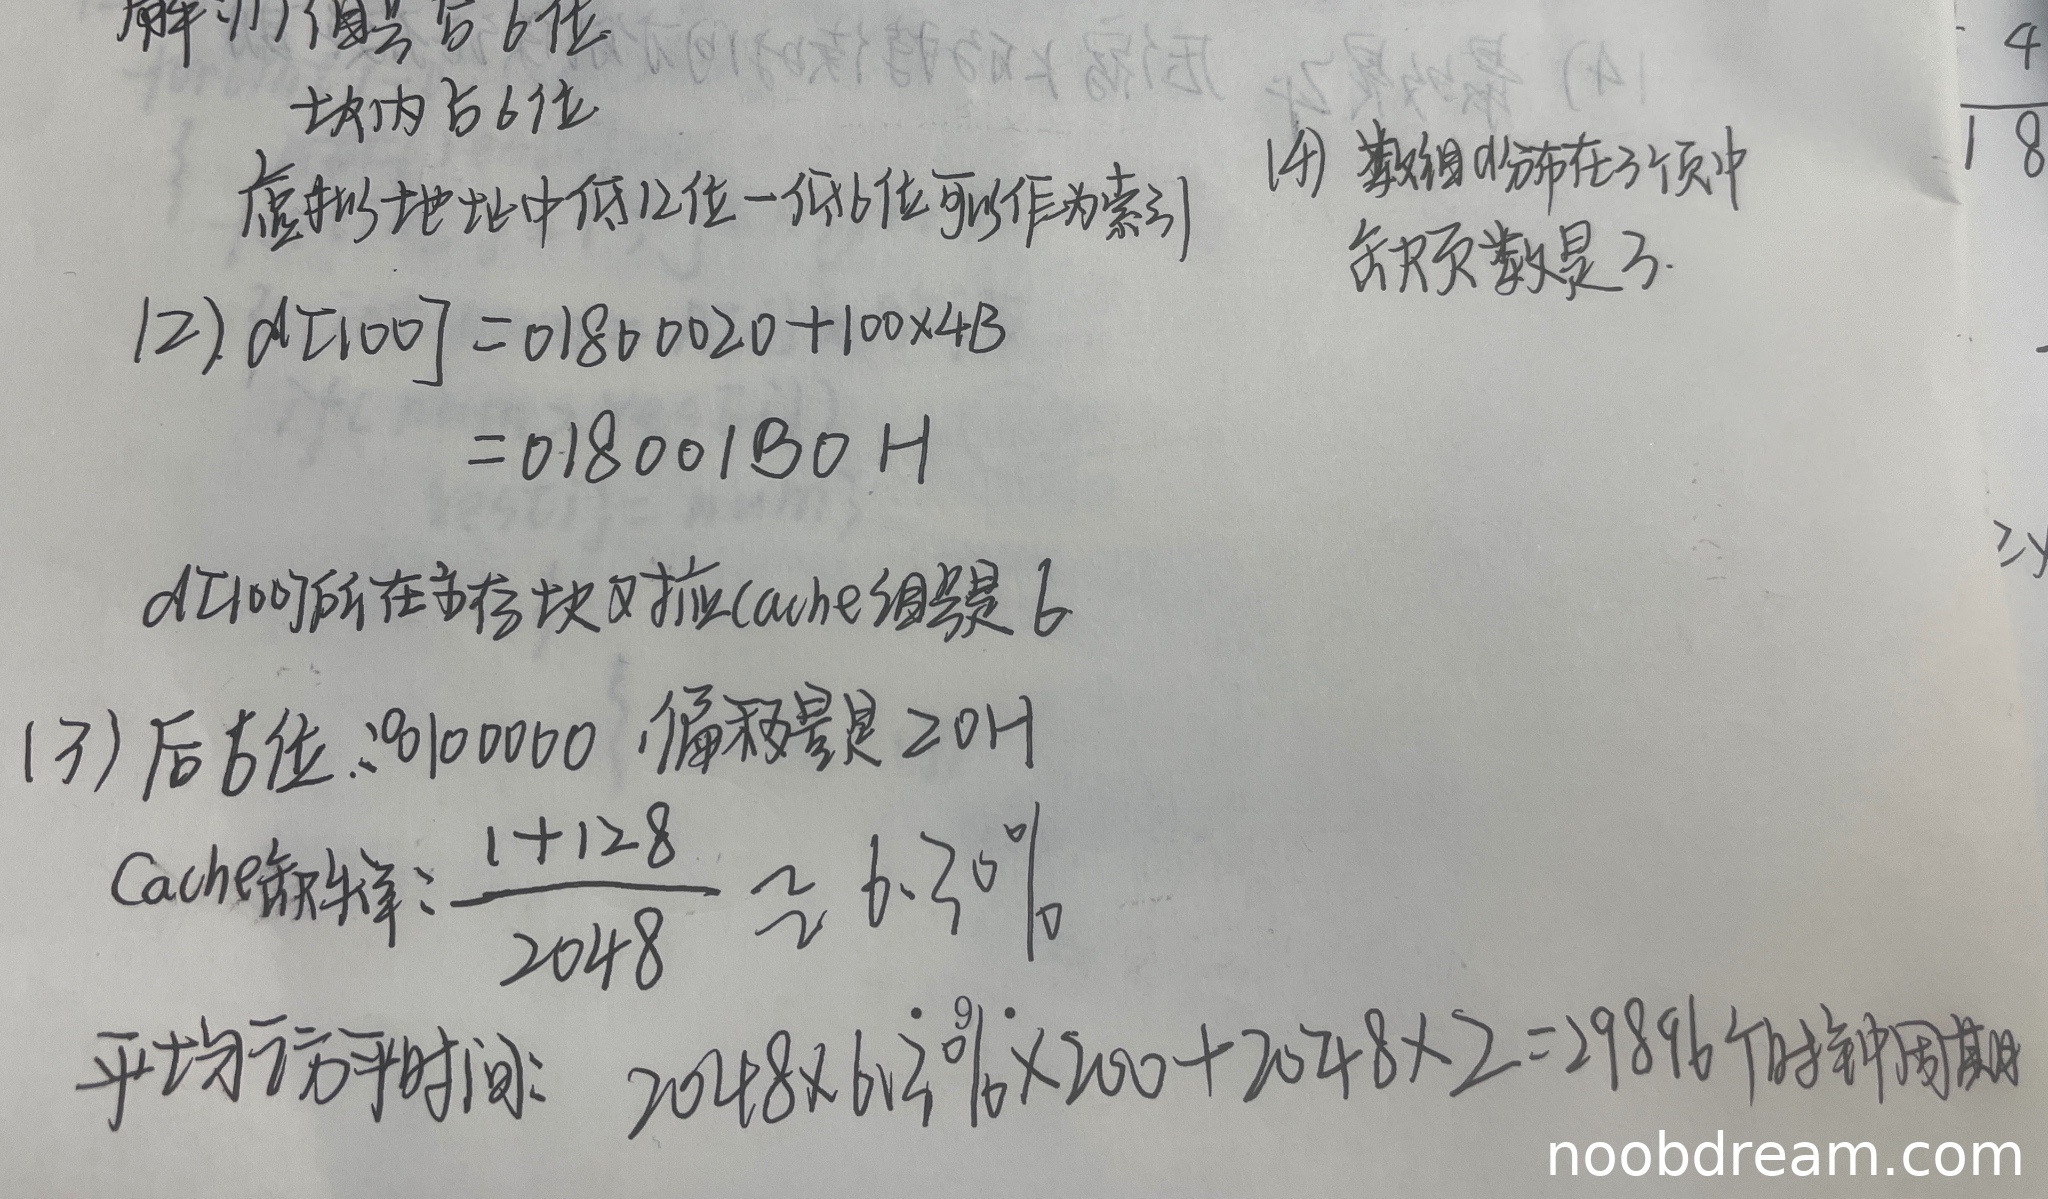 解：(1)组号占6位
块内占6位
虚拟地址中低12位-低6位可以作为索引
(2). d[100] = 01800020+100×4B
= 018001B0 H
d[100]所在主存块对应Cache组号是6
(3) 后6位：100000，偏移量是20H
Cache缺失率： 1+128 / 2048 ≈ 6.30%
平均访存时间： 2048×6.3%×200+2048×2=29896个时钟周期
(4) 数组d分布在3个页中
缺页数是3.
4
18
noobdream.com